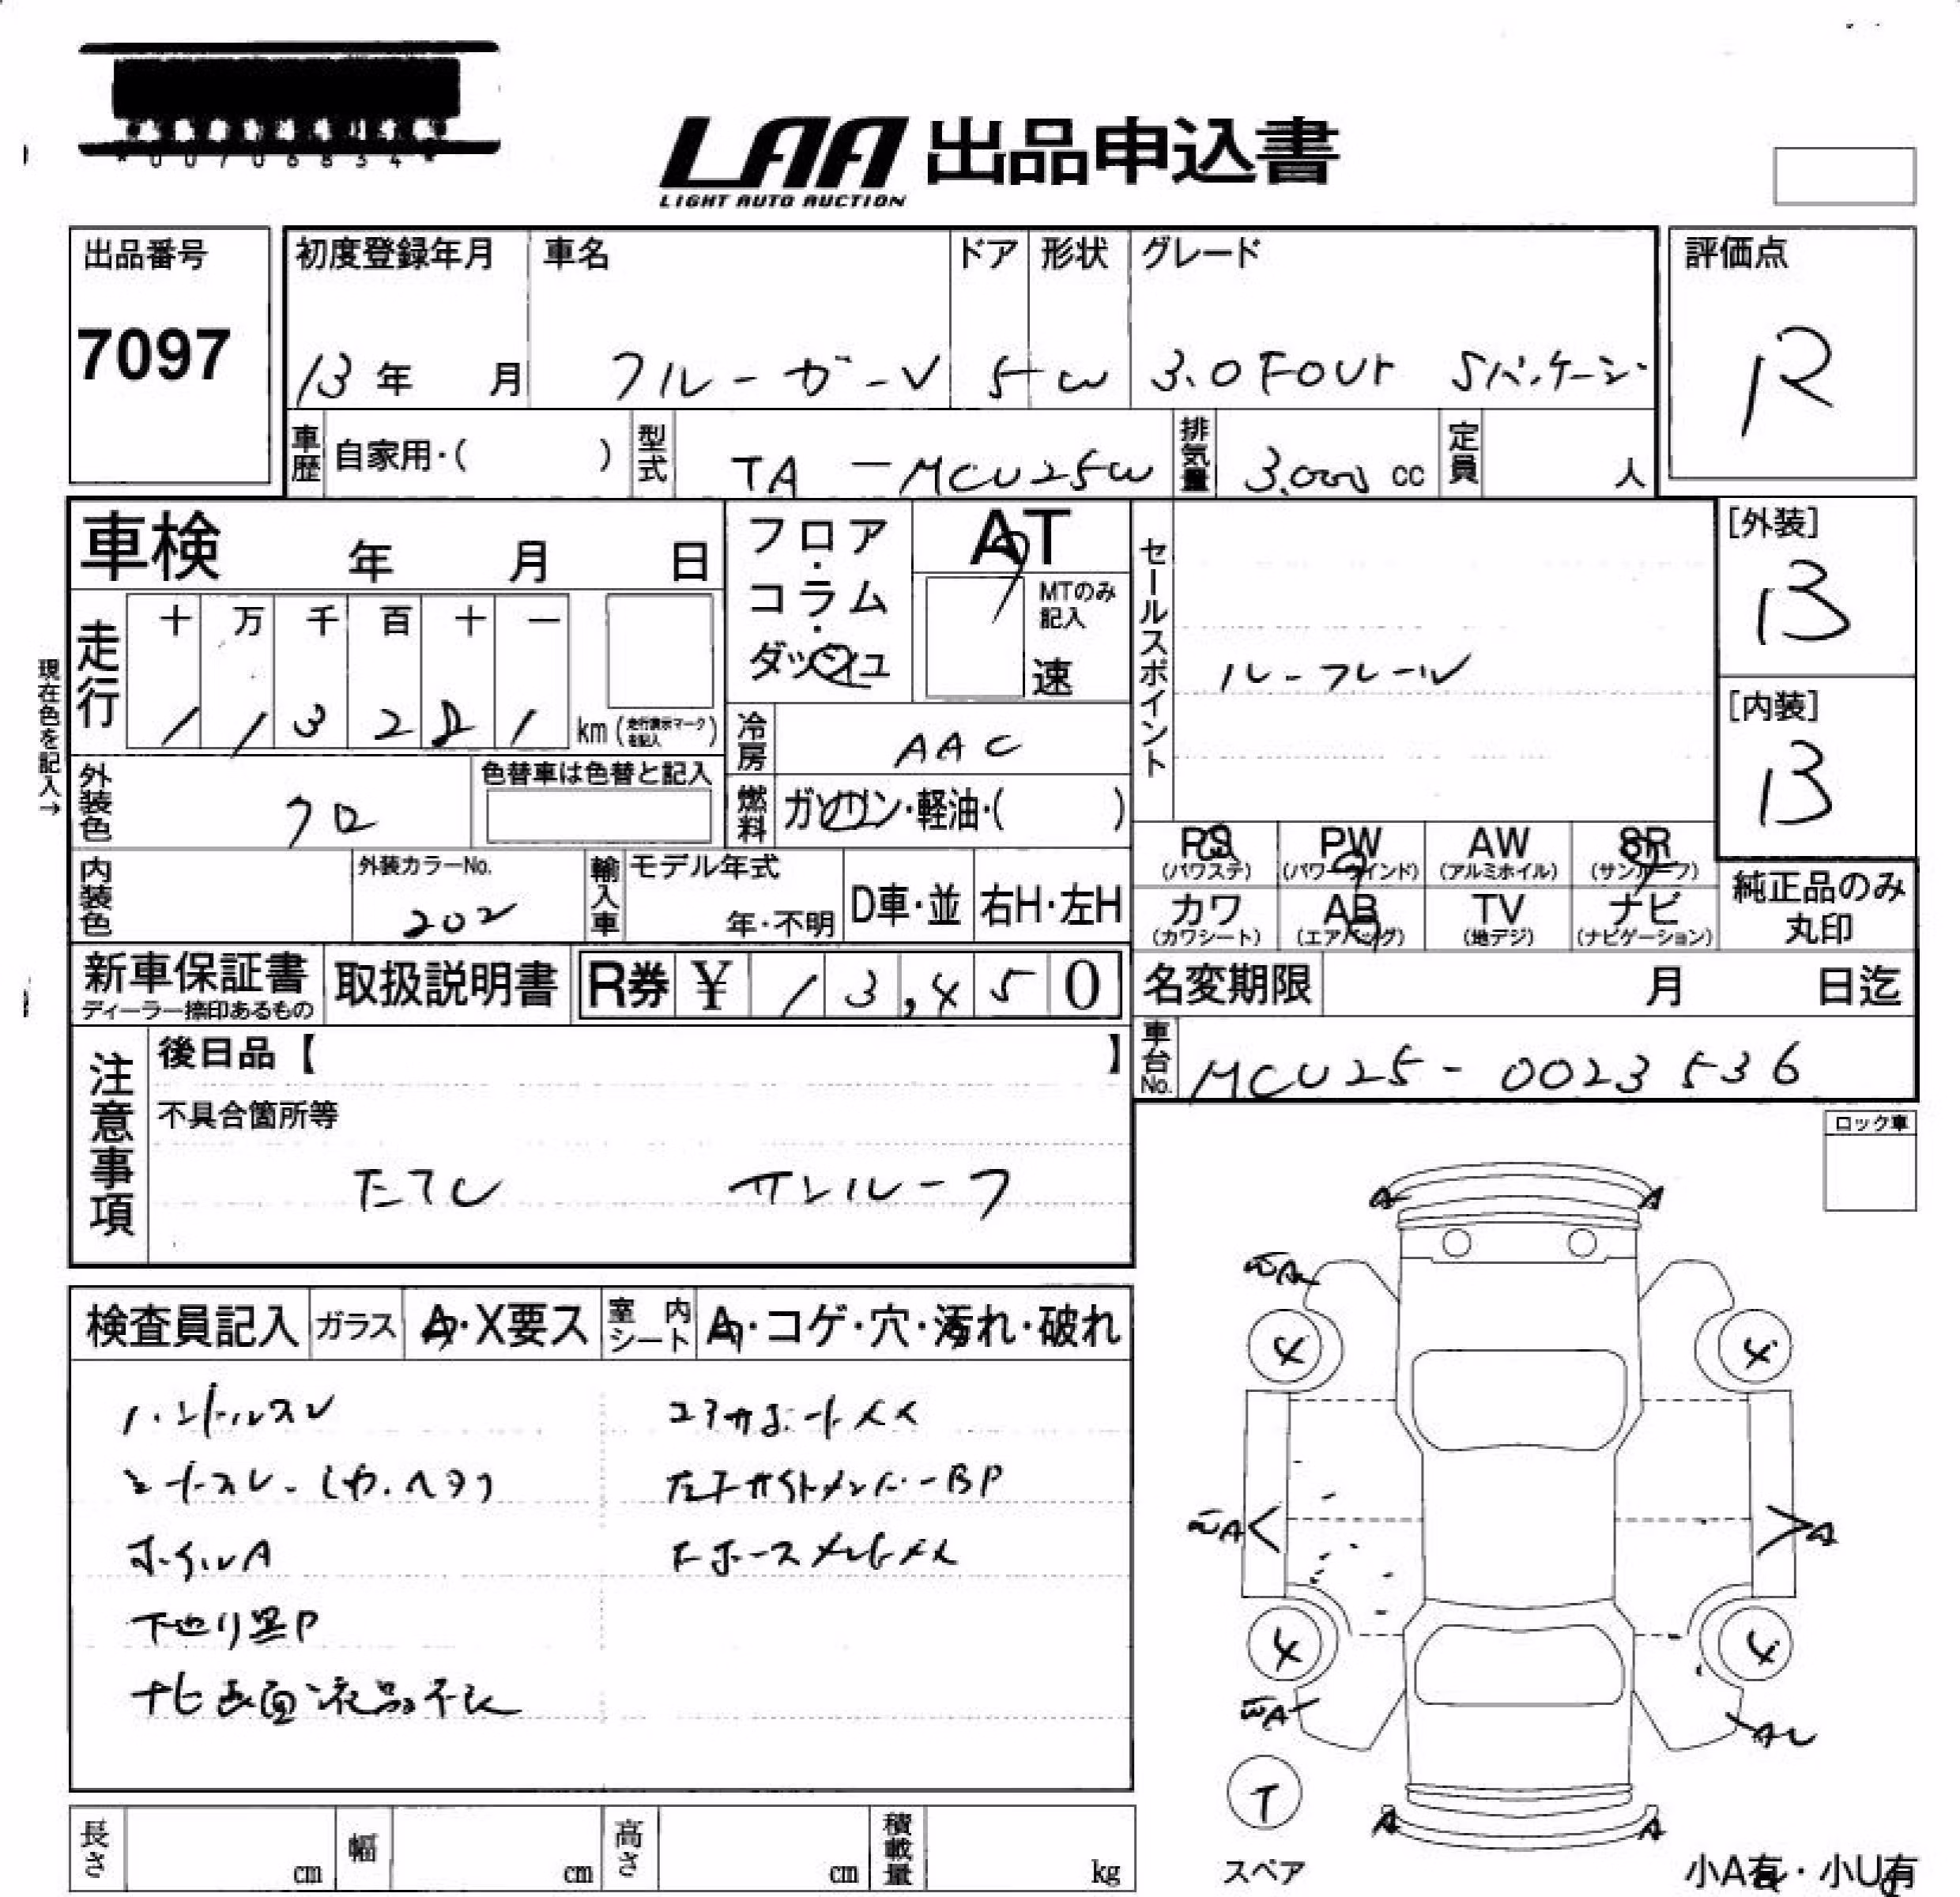 *00706834*
LAA 出品申込書
LIGHT AUTO AUCTION
出品番号
7097
初度登録年月
13年 月
車名
クルーガーV
ドア
5
形状
W
グレード
3.0 FOUr Sパッケージ
評価点
R
車歴 自家用・( )
型式 TA-MCU25W
排気量 3.000 cc
定員 人
車検 年 月 日
フロア・コラム・ダッシュ
AT
MTのみ記入
速
セールスポイント
ルーフレール
[外装]
B
[内装]
B
現在色を記入→
走行 十 万 千 百 十 一
1 1 3 2 8 1 km (走行表示マークを記入)
冷房 AAC
外装色 クロ
色替車は色替と記入
燃料 ガソリン・軽油・( )
内装色
外装カラーNo.
202
輸入車 モデル年式
年・不明
D車・並
右H・左H
PS (パワステ)
PW (パワーウインド)
AW (アルミホイル)
SR (サンルーフ)
カワ (カワシート)
AB (エアバッグ)
TV (地デジ)
ナビ (ナビゲーション)
純正品のみ丸印
新車保証書
ディーラー捺印あるもの
取扱説明書
R券 ¥ 13,450
名変期限 月 日迄
車台No. MCU25-0023536
注意事項
後日品【 】
不具合箇所等
サンルーフ
ロック車
検査員記入
ガラス A・X要ス
室内シート A・コゲ・穴・汚れ・破れ
ハンドルスレ
コアサポートメス
ホイルA
下廻り黒P
ナビ画面液晶不良
A A
A
4 4
A A
4 4
A A
T
スペア
A A
小A有・小U有
長さ cm
幅 cm
高さ cm
積載量 kg